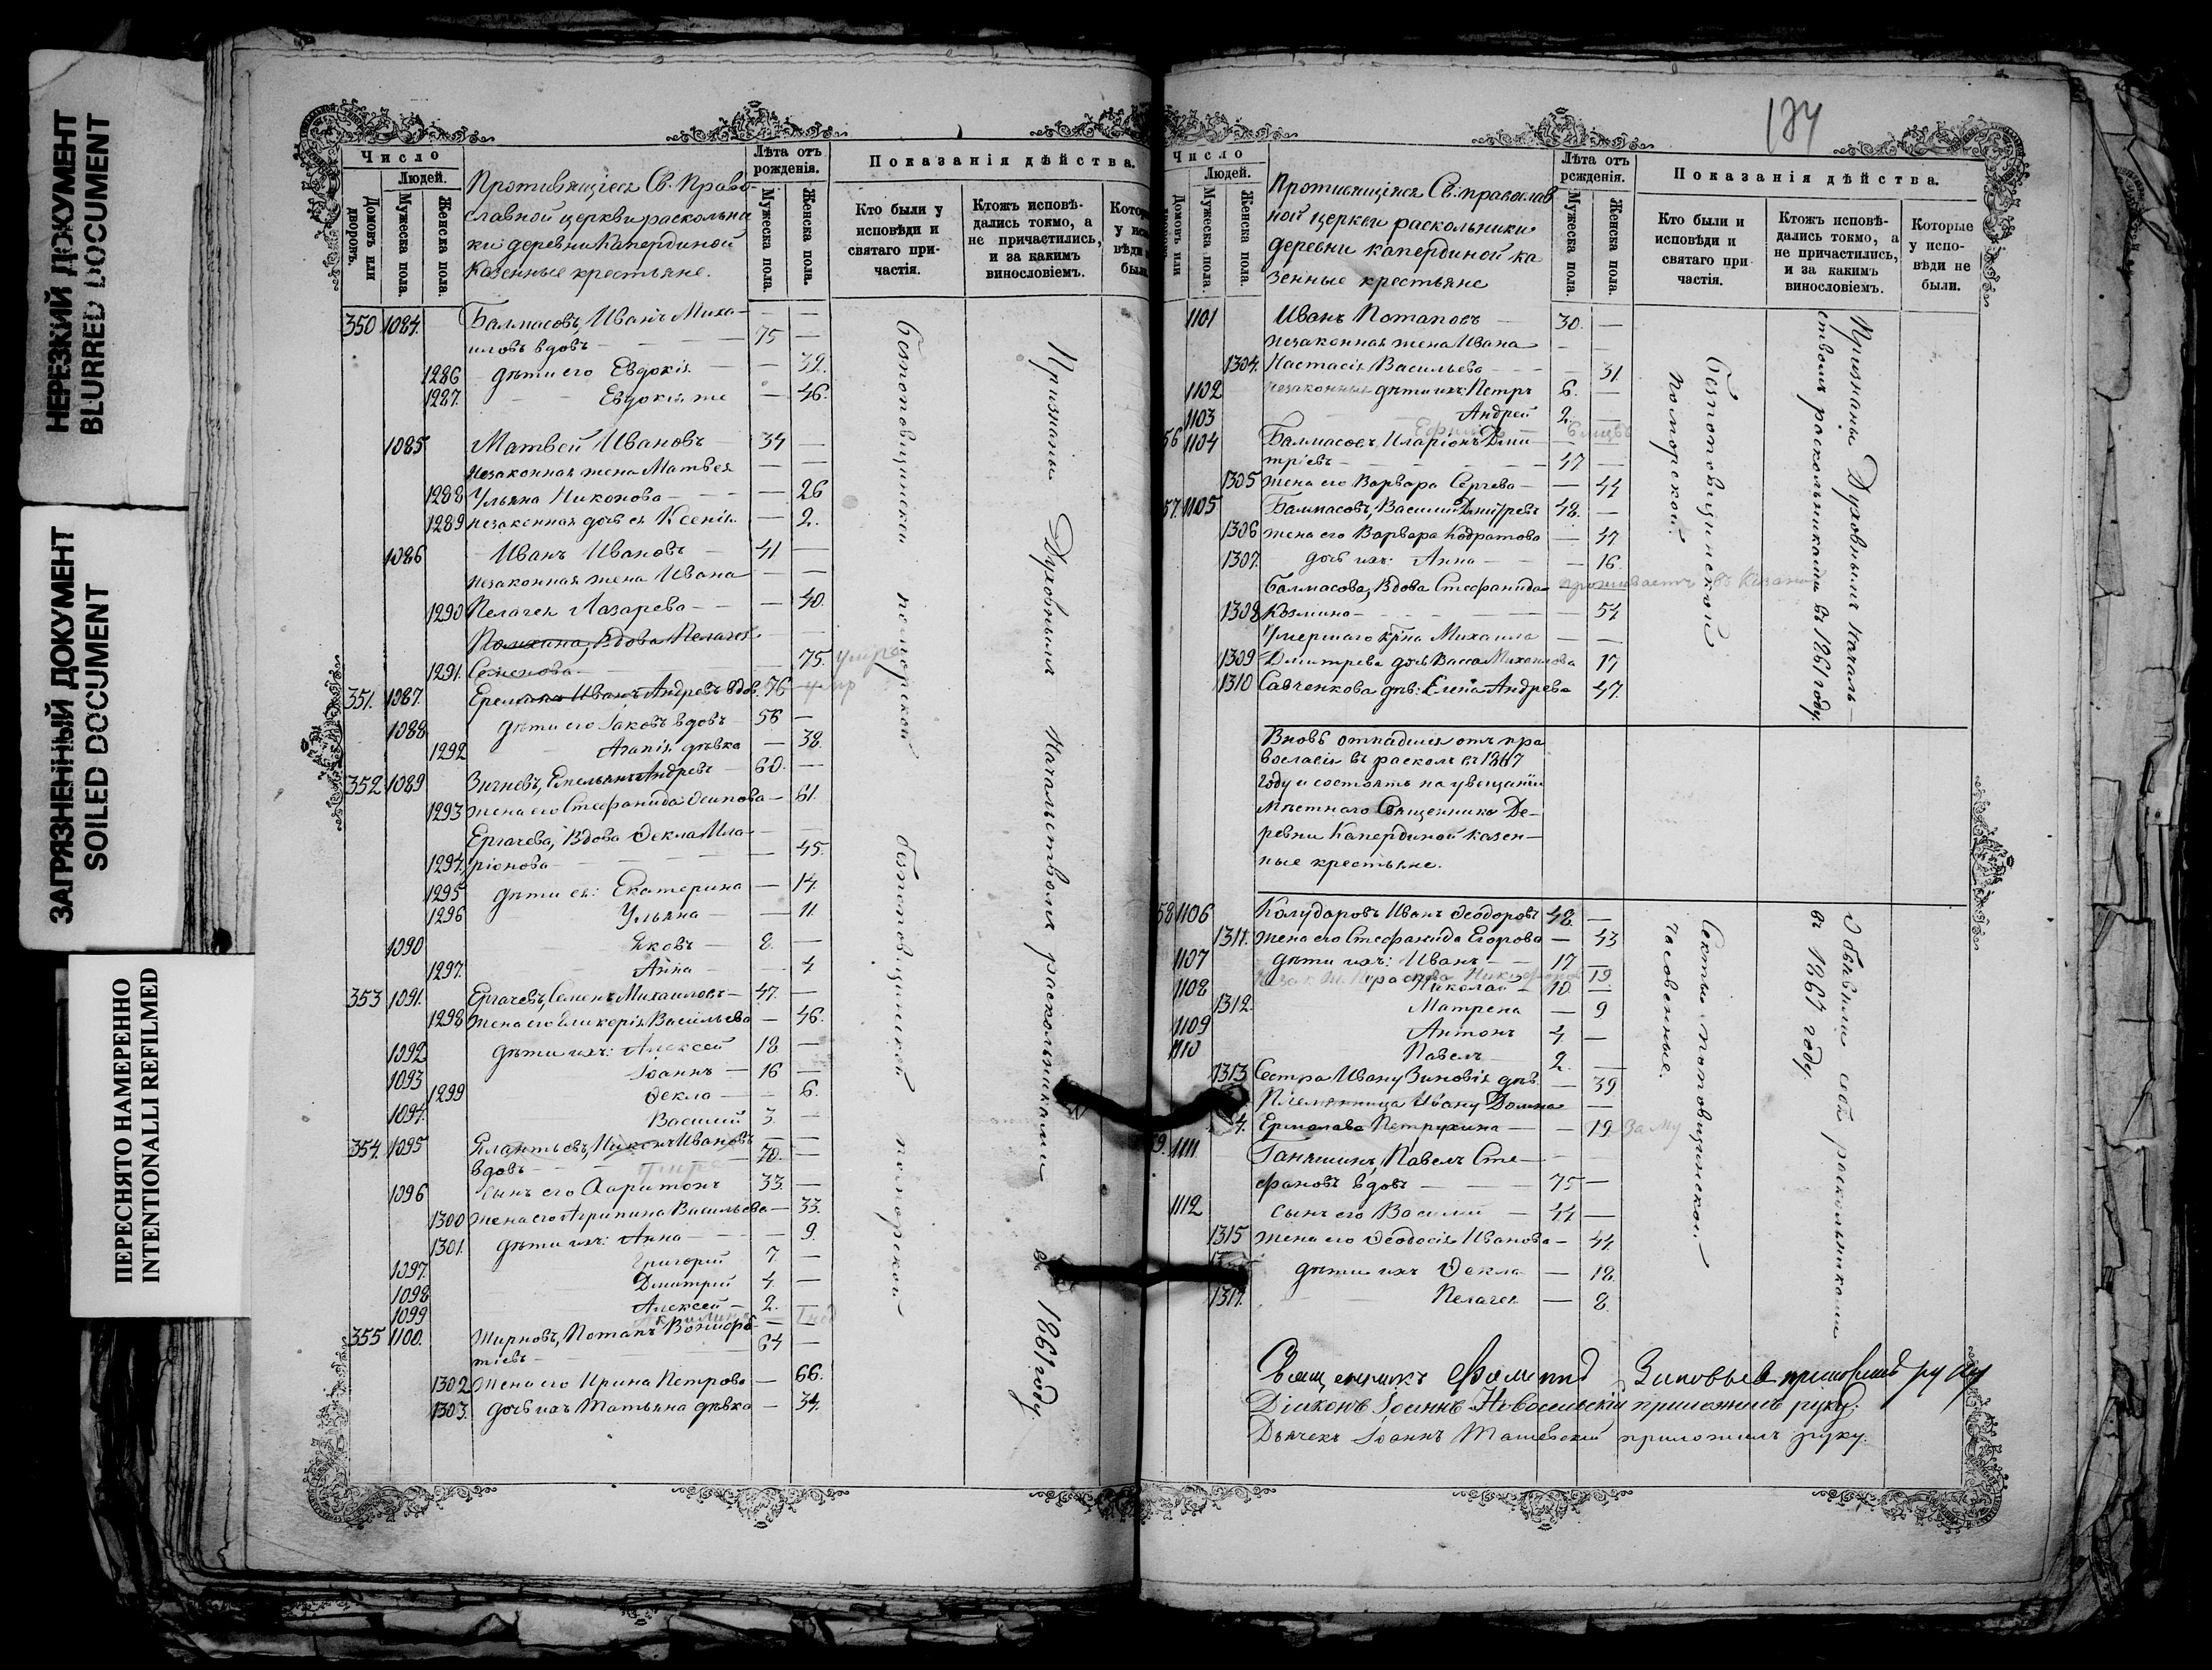 НЕРЕЗКИЙ ДОКУМЕНТ
BLURRED DOCUMENT
ЗАГРЯЗНЕННЫЙ ДОКУМЕНТ
SOILED DOCUMENT
ПЕРЕСНЯТО НАМЕРЕННО
INTENTIONALLI REFILMED
Число
Людей.
Домовъ или дворовъ.
Мужеска пола.
Женска пола.
Противящіеся Св. Право
славной церкви раскольни
ки деревни Капердиной
казенные крестьяне.
Лѣта отъ рожденія.
Мужеска пола.
Женска пола.
Показанія дѣйства.
Кто были у исповѣди и святаго причастія.
Ктожъ исповѣдались токмо, а не причастились, и за какимъ винословіемъ.
350 1084. Балмасовъ, Иванъ Миха- — —
иловъ вдовъ — 75 —
1286 дѣти его Евдокія — — 32.
1287. Евдокія же — 46.
1085 Матвей Ивановъ 34 —
незаконная жена Матвея — —
1288 Ульяна Никонова — — 26
1289 незаконная дочь ея Ксенія — 2.
1086 Иванъ Ивановъ — 41 —
незаконная жена Ивана — —
1290 Пелагея Лазарева — — 40.
вдова Пелагея — —
1291. Семенова — 75. умре
351. 1087. Иванъ Андревъ вдов. 76 умр
1088 дѣти его Іаковъ вдовъ 56 —
1292 Агапія дѣвка — 38.
352 1089 Емельянъ Андревъ — 60. —
1293 жена его Стефанида Осипова — 61.
Ергачева, Вдова Ѳекла Ила- — —
1294. ріонова — — 45.
1295 дѣти ея: Екатерина — 14.
1296 Ульяна — — 11.
1090 Яковъ — 8. —
1297. Анна — — 4
353 1091. Ергачевъ, Семенъ Михаиловъ — 47. —
1298 жена его Гликерія Васильева — 46.
1092 дѣти ихъ: Алексей 18. —
1093 Іоаннъ — 16 —
1299 Ѳекла — — 6.
1094. Василій 3. —
354. 1095 Никонъ Ивановъ — —
вдовъ — умре 70. —
1096 сынъ его Харитонъ 33. —
1300 жена его Агрипина Васильева — 33.
1301. дѣти ихъ: Анна — — 9.
1097. Григорій 7. —
1098 Дмитрій 4. —
1099 Алексей — 2. —
355 1100. Жирновъ, Потапъ —
тіевъ — 64 —
1302 жена его Ирина Петрова — 66.
1303. дочь ихъ Татьяна дѣвка — 34.
безпоповщинской поморской безпоповщинской поморской
Признаны Духовнымъ Начальствомъ раскольниками въ 1861 году.
174
Число
Людей.
Домовъ или
Мужеска пола.
Женска пола.
Противящіяся Св. православ
ной церкви раскольники
деревни капердиной ка
зенные крестьяне
Лѣта отъ рожденія.
Мужеска пола.
Женска пола.
Показанія дѣйства.
Кто были и исповѣди и святаго при частія.
Ктожъ исповѣдались токмо, а не причастились, и за какимъ винословіемъ.
Которые у исповѣди не были.
1101 Иванъ Потаповъ 30. —
незаконная жена Ивана — —
1304. Настасія Васильева — — 31.
1102 незаконные дѣти ихъ: Петръ 6. —
1103 Андрей 2. —
56 1104 Балмасовъ, Иларіонъ Дми — —
тріевъ — 47 —
1305 жена его Варвара Сергева — — 44
57. 1105 Балмасовъ, Василій Дмитревъ 48. —
1306 жена его Варвара Кодратова — 47
1307. дочь ихъ: Анна — — 16.
Балмасова, Вдова Стефанида — проживаетъ въ Казани
1308 Козмина — — 54
Умершаго кр̃на Михаила — —
1309 Дмитрева дочь Васса Михаилова 17
1310 Савченкова дѣв: Елена Андрева 47.
Безпоповщинской поморской
Признаны Духовнымъ Началь-
ствомъ раскольниками въ 1861 году.
Вновь отпадшія отъ пра
вославія въ расколъ въ 1867
году и состоятъ на увещаніи
мѣстнаго Священника Де-
ревни Капердиной казен-
ные крестьяне.
58 1106 Калударовъ Иванъ Ѳеодоровъ 48. —
1311. жена его Стефанида Егорова — 43
1107 дѣти ихъ: Иванъ — — 17 —
19
1108 Николай — 10. —
1312. Матрена — 9
1109 Антонъ 4 —
1110 Павелъ 2. —
1313 Сестра Ивану Зиновія дѣв. — 39
Племянница Ивану Домна —
4. Ермолаева Петрухина — — 19 заму
9. 1111. Ганяшинъ, Павелъ Сте- —
фановъ вдовъ — 75 —
1112 сынъ его Василій — 44 —
1315 жена его Ѳеодосія Иванова — 44.
дѣти ихъ Ѳекла — 18.
1317. Пелагея — 8.
Секты поповщинской
часовенные.
Объявили себя раскольниками
въ 1867 году.
Священникъ Зиновьевъ приложилъ руку
Діаконъ Іоаннъ Новосельскій приложилъ руку.
Дьячекъ Іоаннъ Ташевскій приложилъ руку.